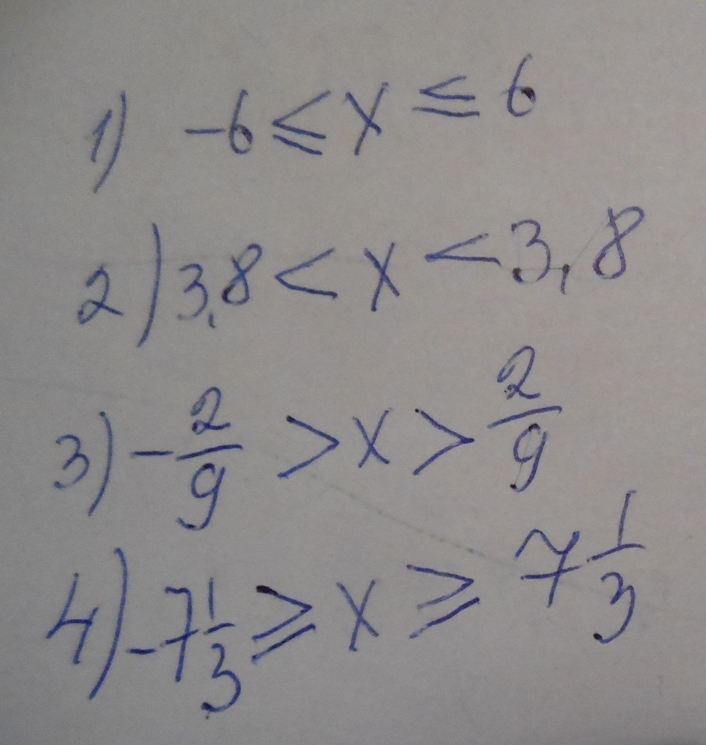 1) -6 ≤ x ≤ 6
2) 3,8 < x < 3,8
3) - 2/9 > x > 2/9
4) -7 1/3 ≥ x ≥ 7 1/3